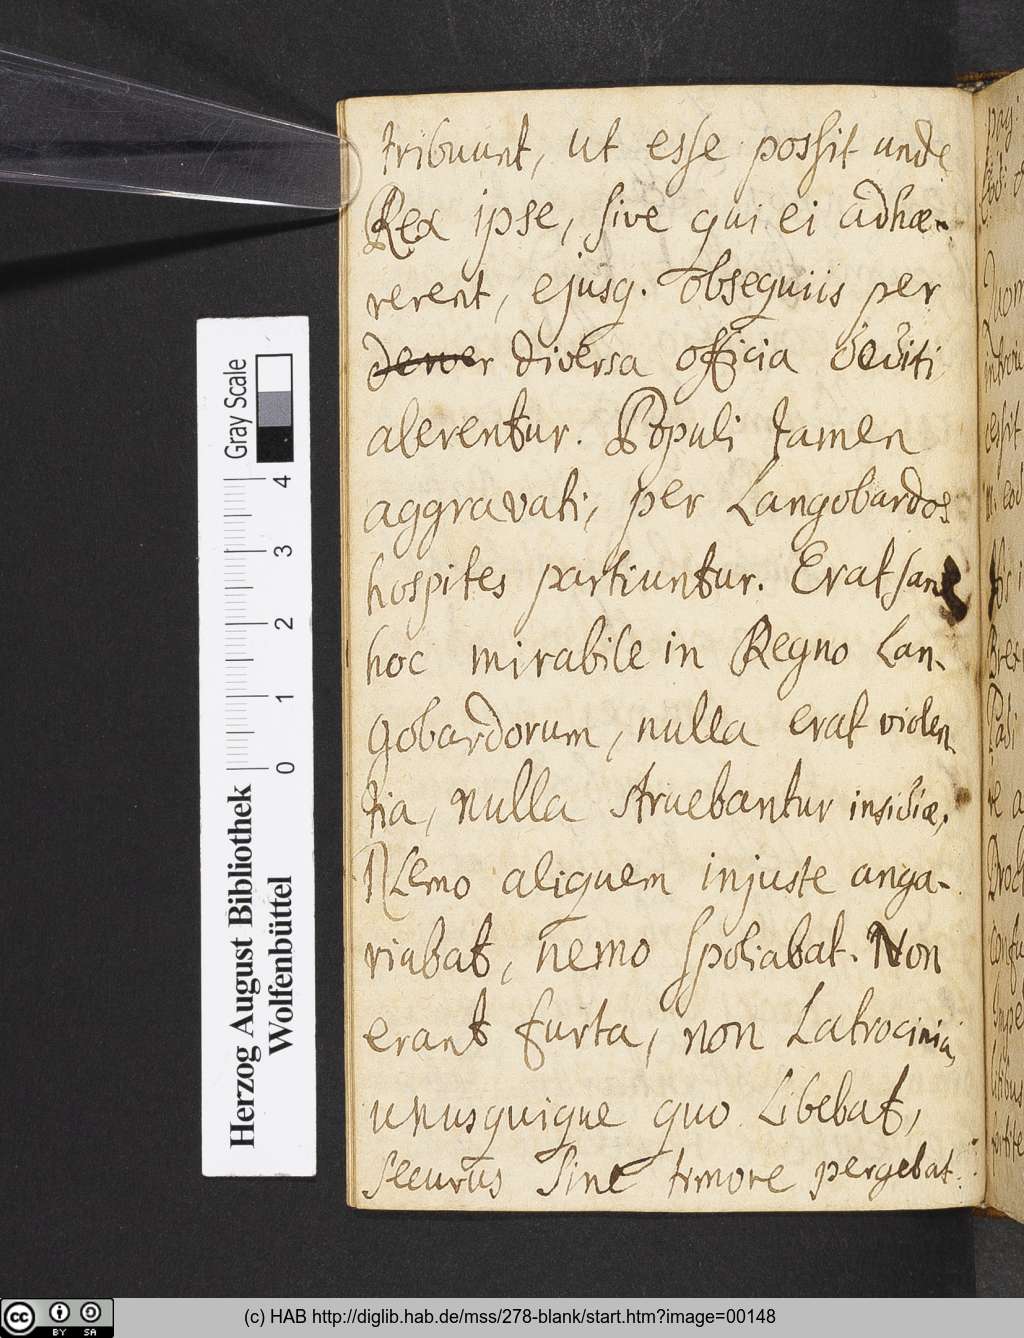 tribuunt, ut esse possit unde
Rex ipse, sive qui ei adhæ-
rerent, ejusq. obsequiis per
dewer diversa officia dediti
alerentur. Populi tamen
aggravati, per Langobardos
hospites partiuntur. Erat sane
hoc mirabile in Regno Lan-
gobardorum, nulla erat violen-
tia, nulla struebantur insidiæ,
Nemo aliquem injuste anga-
riabat, nemo spoliabat. Non
erant furta, non Latrocinia,
unusquique quo Libebat,
securus sine timore pergebat.
Gray Scale
4
3
2
1
0
Herzog August Bibliothek
Wolfenbüttel
cc BY SA
(c) HAB http://diglib.hab.de/mss/278-blank/start.htm?image=00148